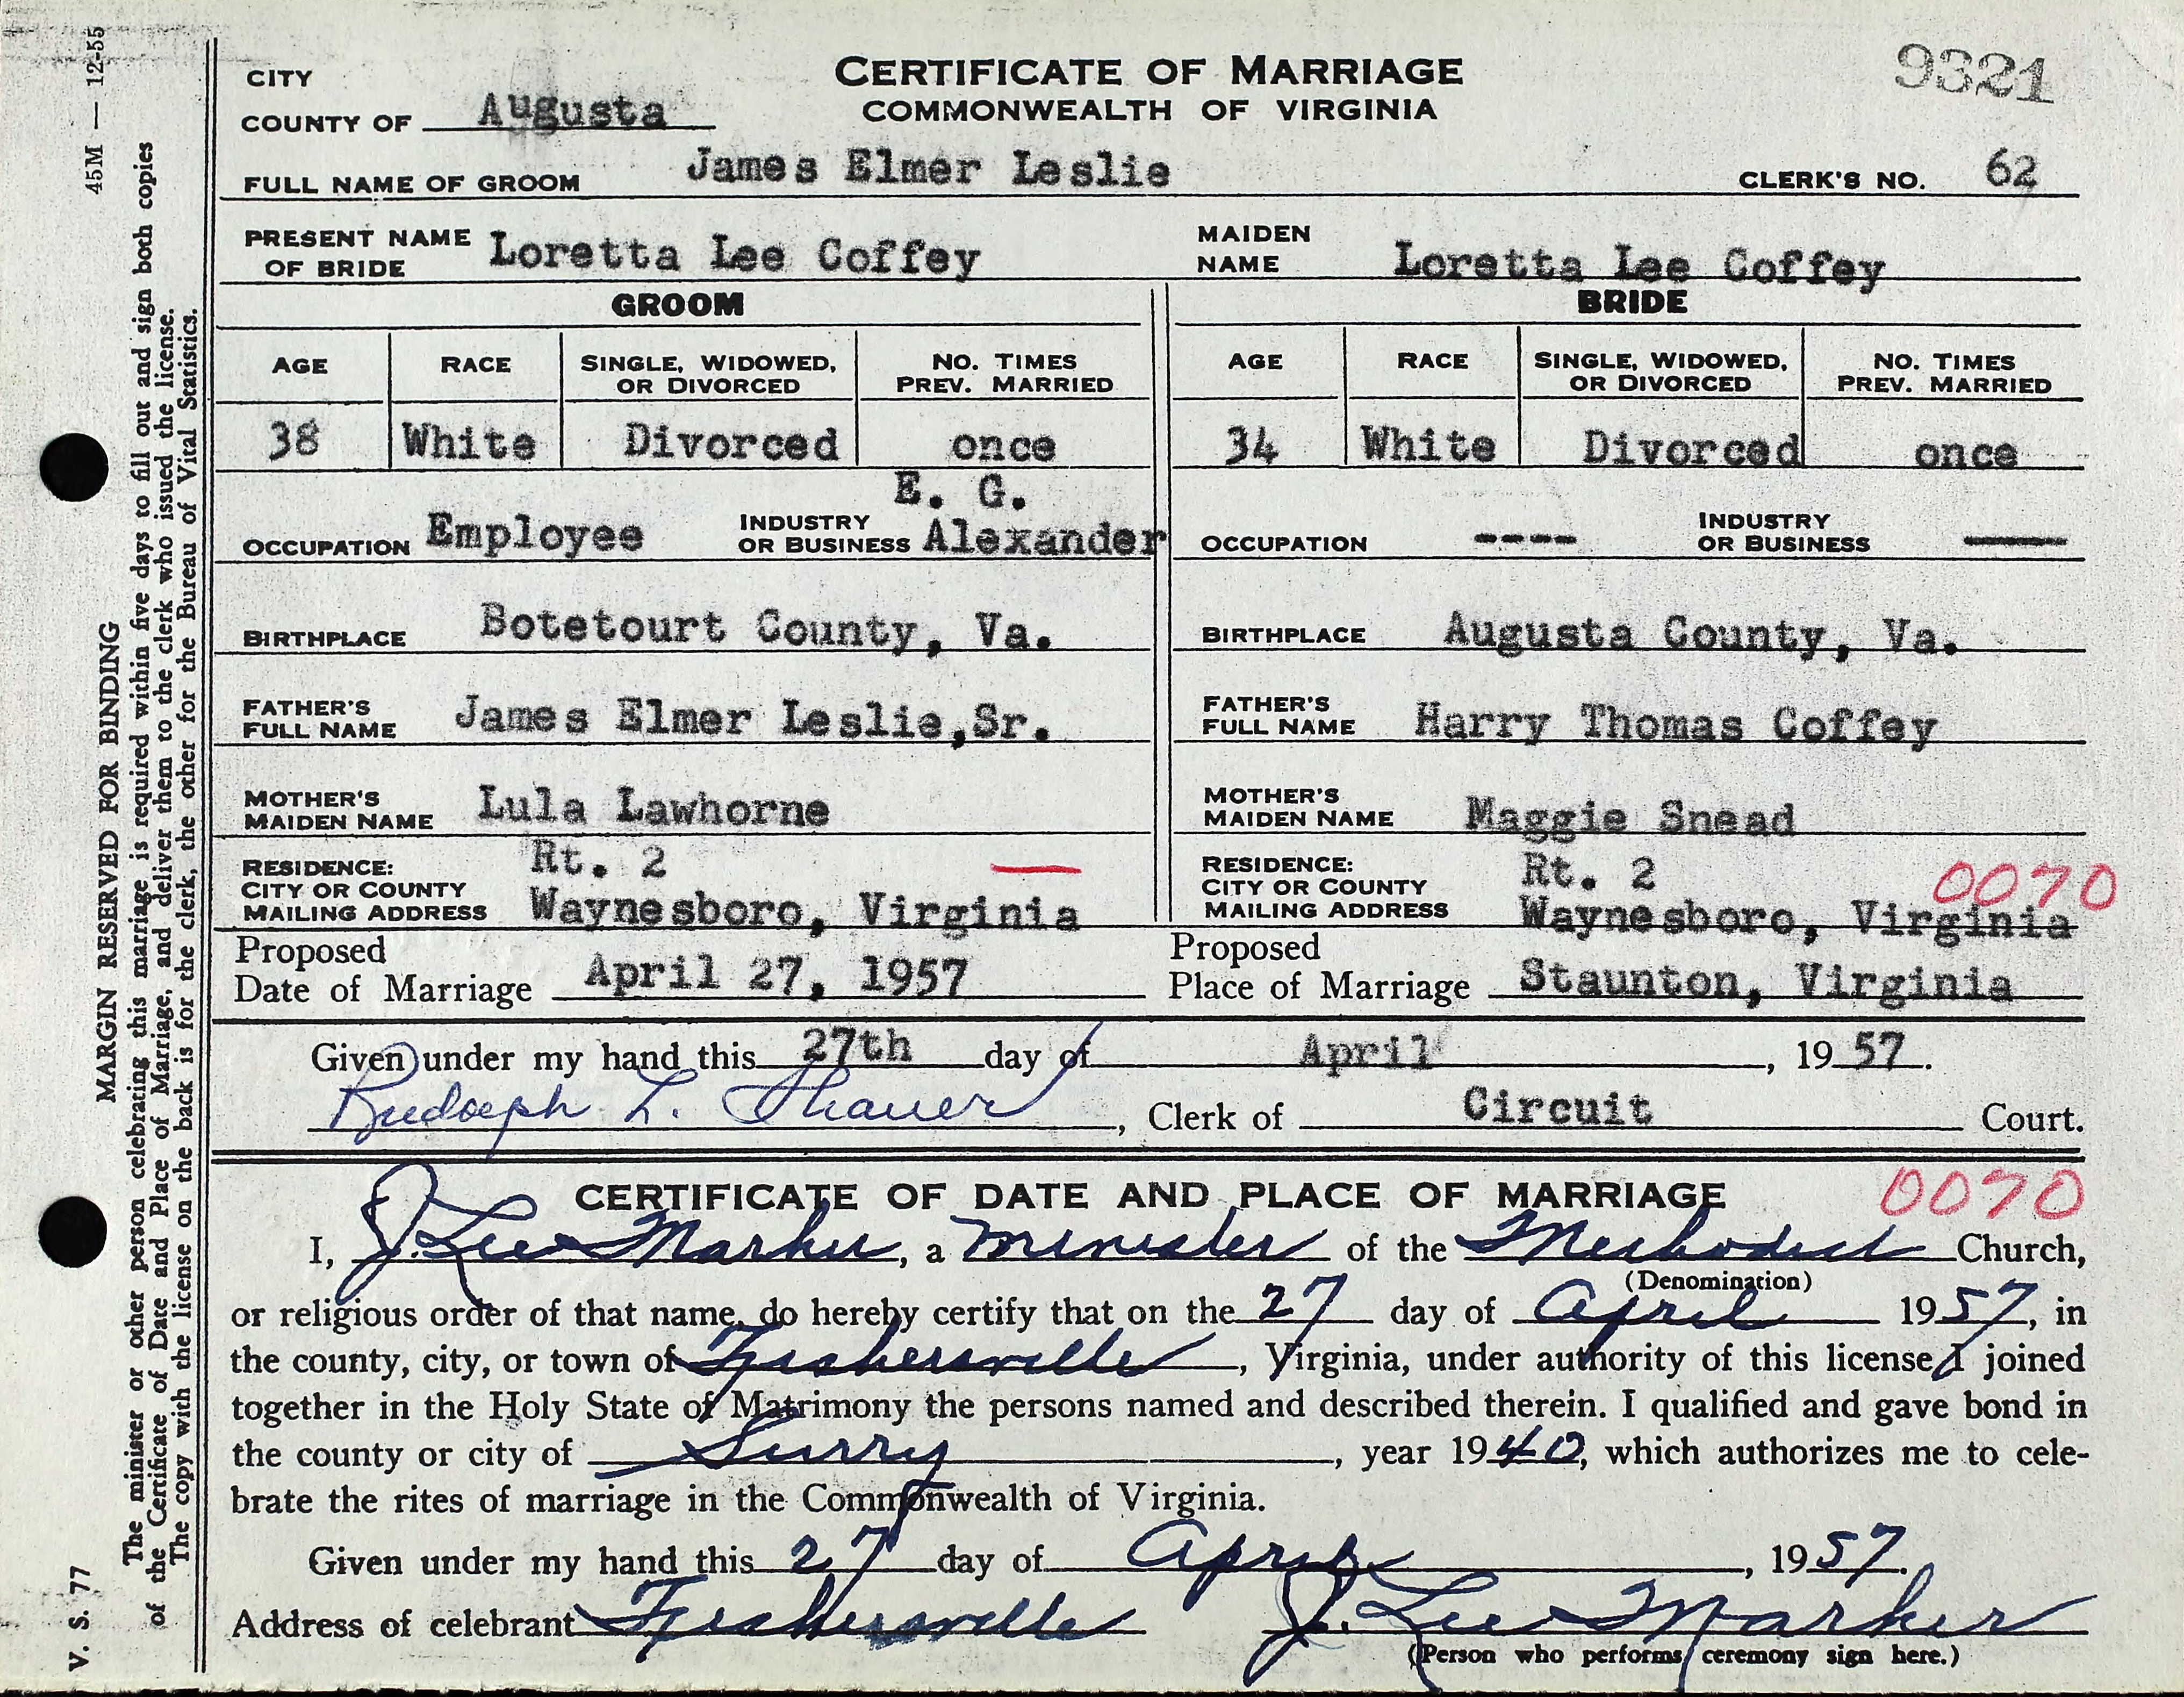 45M — 12-55
MARGIN RESERVED FOR BINDING
The minister or other person celebrating this marriage is required within five days to fill out and sign both copies
of the Certificate of Date and Place of Marriage, and deliver them to the clerk who issued the license.
The copy with the license on the back is for the clerk, the other for the Bureau of Vital Statistics.
V. S. 77
CERTIFICATE OF MARRIAGE
COMMONWEALTH OF VIRGINIA
9321
CITY
COUNTY OF Augusta
FULL NAME OF GROOM James Elmer Leslie CLERK'S NO. 62
PRESENT NAME OF BRIDE Loretta Lee Coffey MAIDEN NAME Loretta Lee Coffey
GROOM BRIDE
AGE RACE SINGLE, WIDOWED, OR DIVORCED NO. TIMES PREV. MARRIED AGE RACE SINGLE, WIDOWED, OR DIVORCED NO. TIMES PREV. MARRIED
38 White Divorced once 34 White Divorced once
OCCUPATION Employee INDUSTRY OR BUSINESS E. G. Alexander OCCUPATION ---- INDUSTRY OR BUSINESS ——
BIRTHPLACE Botetourt County, Va. BIRTHPLACE Augusta County, Va.
FATHER'S FULL NAME James Elmer Leslie,Sr. FATHER'S FULL NAME Harry Thomas Coffey
MOTHER'S MAIDEN NAME Lula Lawhorne MOTHER'S MAIDEN NAME Maggie Snead
RESIDENCE: Rt. 2 — RESIDENCE: Rt. 2 0070
CITY OR COUNTY
MAILING ADDRESS Waynesboro, Virginia CITY OR COUNTY MAILING ADDRESS Waynesboro, Virginia
Proposed Date of Marriage April 27, 1957 Proposed Place of Marriage Staunton, Virginia
Given under my hand this 27th day of April, 1957.
Rudolph L. Shaver, Clerk of Circuit Court.
CERTIFICATE OF DATE AND PLACE OF MARRIAGE 0070
I, J. Lee Marker, a minister of the Methodist Church,
(Denomination)
or religious order of that name, do hereby certify that on the 27 day of April 1957, in
the county, city, or town of Fishersville, Virginia, under authority of this license I joined
together in the Holy State of Matrimony the persons named and described therein. I qualified and gave bond in
the county or city of Surry, year 1940, which authorizes me to cele-
brate the rites of marriage in the Commonwealth of Virginia.
Given under my hand this 27 day of April, 1957.
Address of celebrant Fishersville J. Lee Marker
(Person who performs ceremony sign here.)